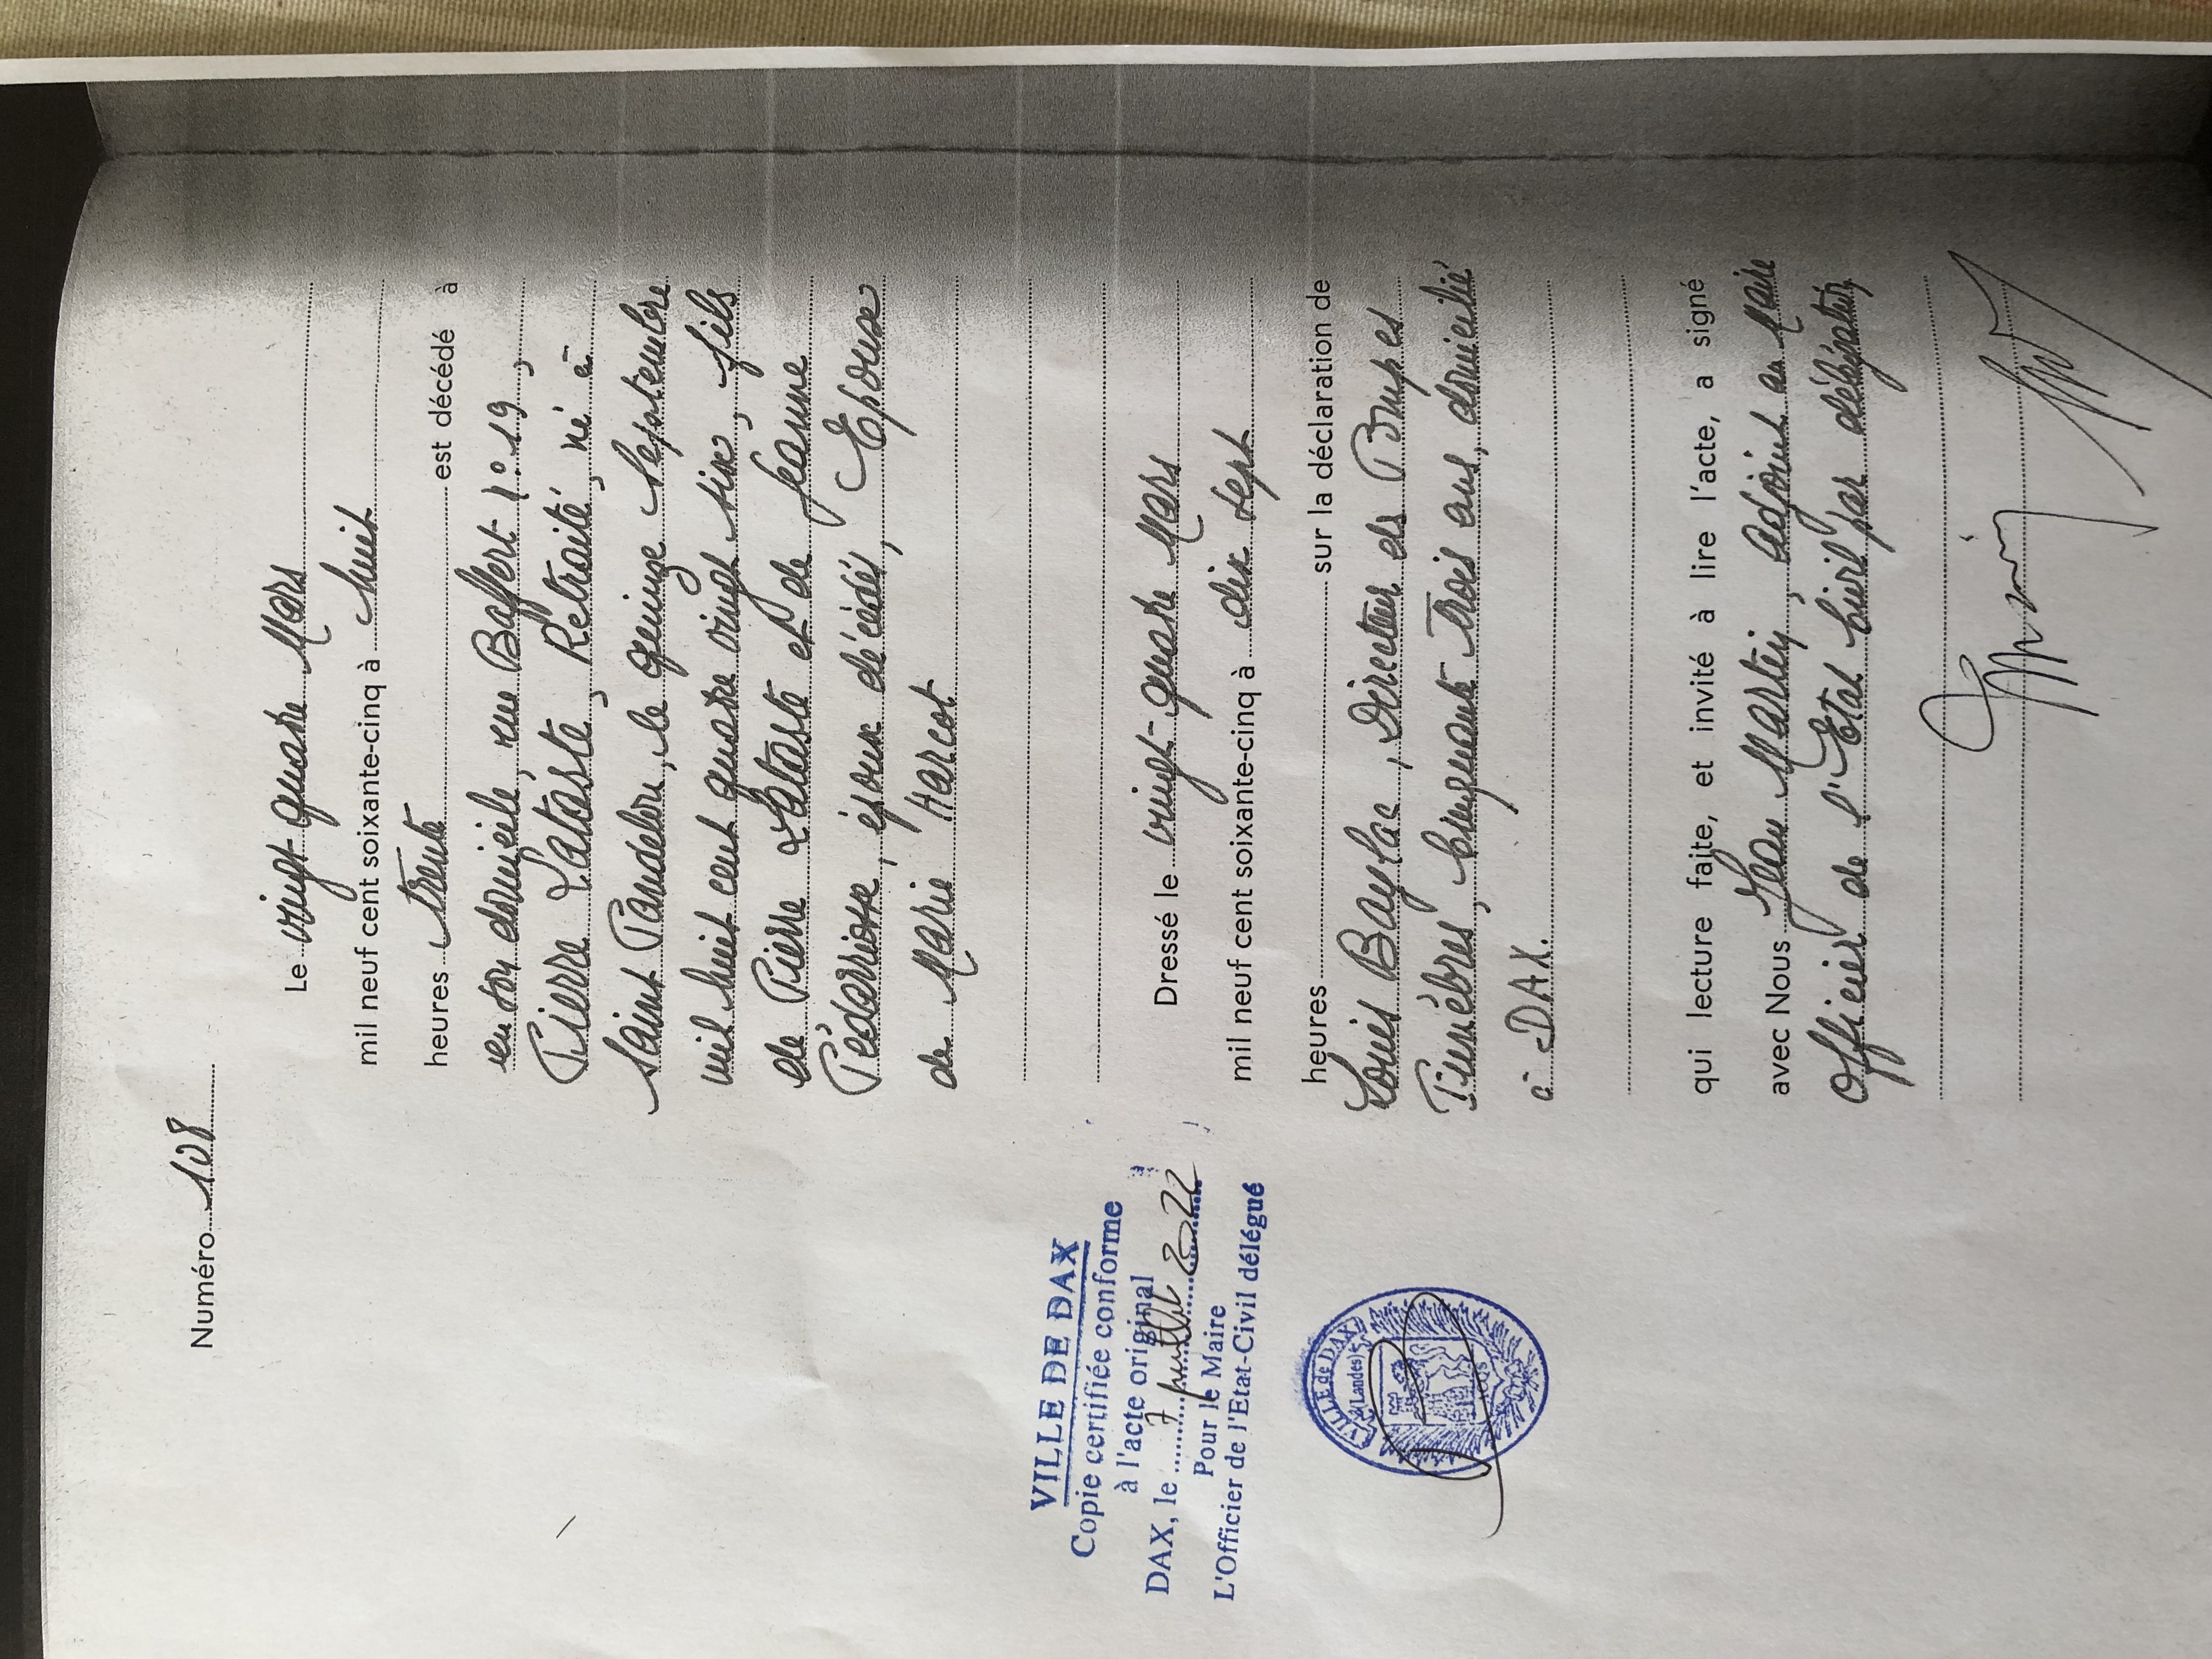 Numéro 108
Le vingt quatre Mars
mil neuf cent soixante-cinq à huit
heures trente est décédé à
en son domicile, rue Baffert n° 19,
Pierre Lataste, Retraité, né à
Saint Pandelon, le quinze Septembre
mil huit cent quatre vingt six, fils
de Pierre Lataste et de Jeanne
Pédarriosse, époux décédés, Epoux
de Marie Harcot
Dressé le vingt-quatre Mars
mil neuf cent soixante-cinq à dix sept
heures sur la déclaration de
Louis Baylac, Directeur des Pompes
Funèbres, cinquante trois ans, domicilié
à DAX.
qui lecture faite, et invité à lire l'acte, a signé
avec Nous Jean Martin, adjoint au Maire
officier de l'Etat Civil par délégation
VILLE DE DAX
Copie certifiée conforme
à l'acte original
DAX, le 7 juillet 2022
Pour le Maire
L'Officier de l'Etat-Civil délégué
VILLE de DAX
(Landes)